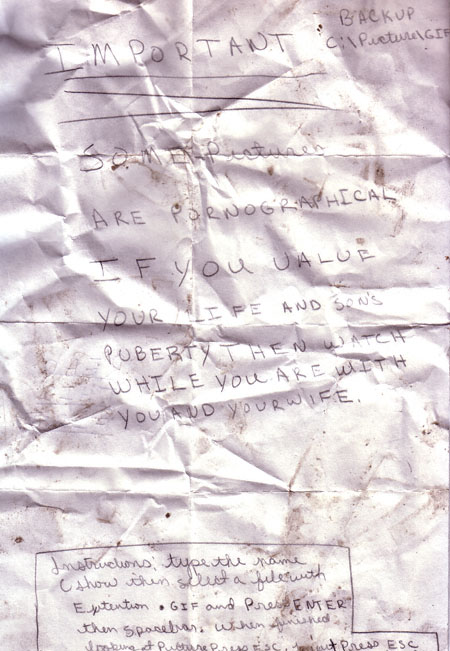 BACKUP
C:\Picture\GIF
IMPORTANT
SOME Pictures
ARE PORNOGRAPHICAL
IF YOU VALUE
YOUR LIFE AND SON'S
PUBERTY THEN WATCH
WHILE YOU ARE WITH
YOU AND YOUR WIFE.
Instructions: type the name
Cshow then select a file with
Extention .GIF and Press ENTER
then spacebar. When finished
looking at Picture Press ESC, Press ESC